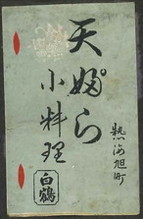 天婦ら
小料理
白鶴
熱海旭町